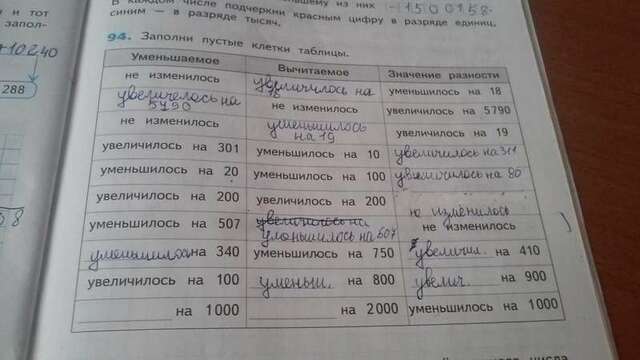 В каждом числе подчеркни красным цифру в разряде единиц,
синим — в разряде тысяч.
1500158
и тот
запол-
+10240
288
94. Заполни пустые клетки таблицы.
Уменьшаемое Вычитаемое Значение разности
не изменилось увеличилось на 18 уменьшилось на 18
увеличелось на 5790 не изменилось увеличилось на 5790
не изменилось уменьшилось на 19 увеличилось на 19
увеличилось на 301 уменьшилось на 10 увеличилось на 311
уменьшилось на 20 уменьшилось на 100 увеличилось на 80
увеличилось на 200 увеличилось на 200 не изменилось
уменьшилось на 507 увеличилось на уменьшилось на 507 не изменилось
уменьшилось на 340 уменьшилось на 750 увеличил. на 410
увеличилось на 100 уменьш. на 800 увелич. на 900
на 1000 на 2000 уменьшилось на 1000